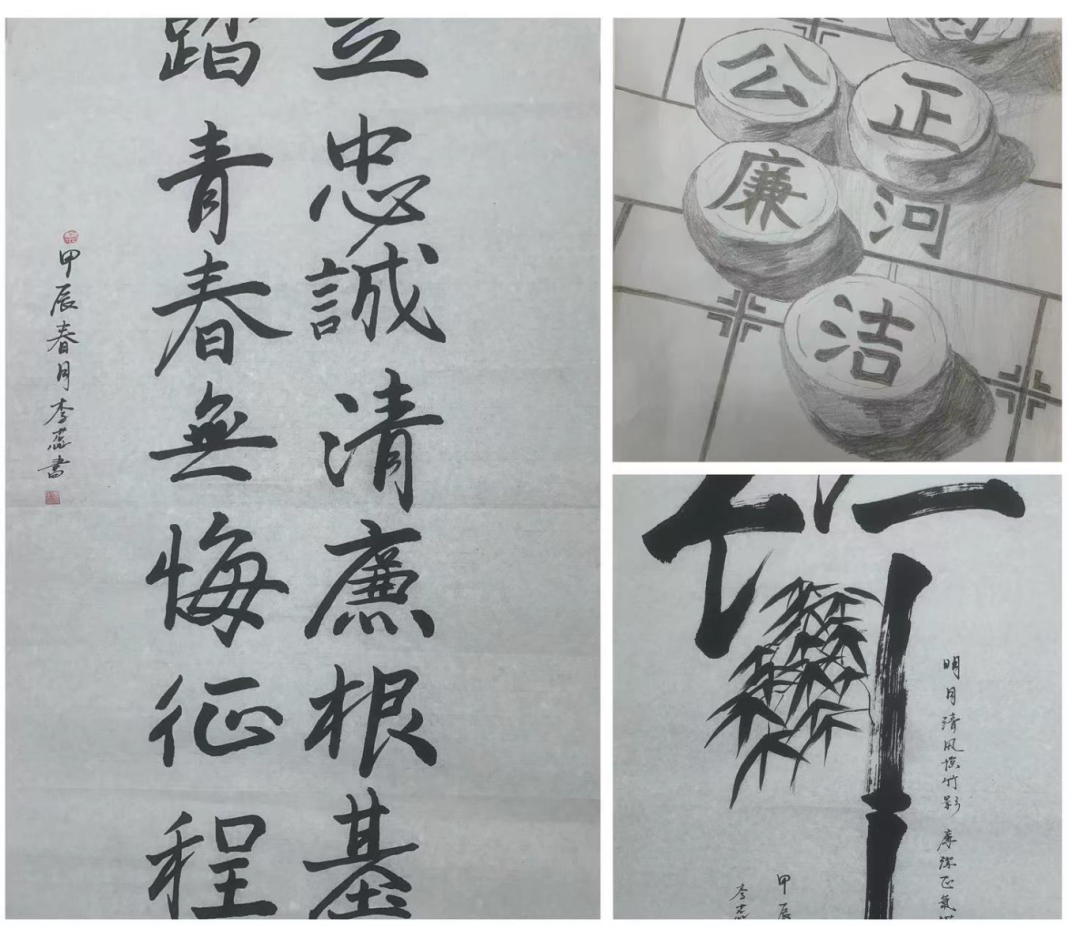 立忠誠清廉根基
踏青春無悔征程
甲辰春月李蕊書
公正
廉河
洁
竹
明月清风竹影 廉潔正氣
甲辰
李蕊